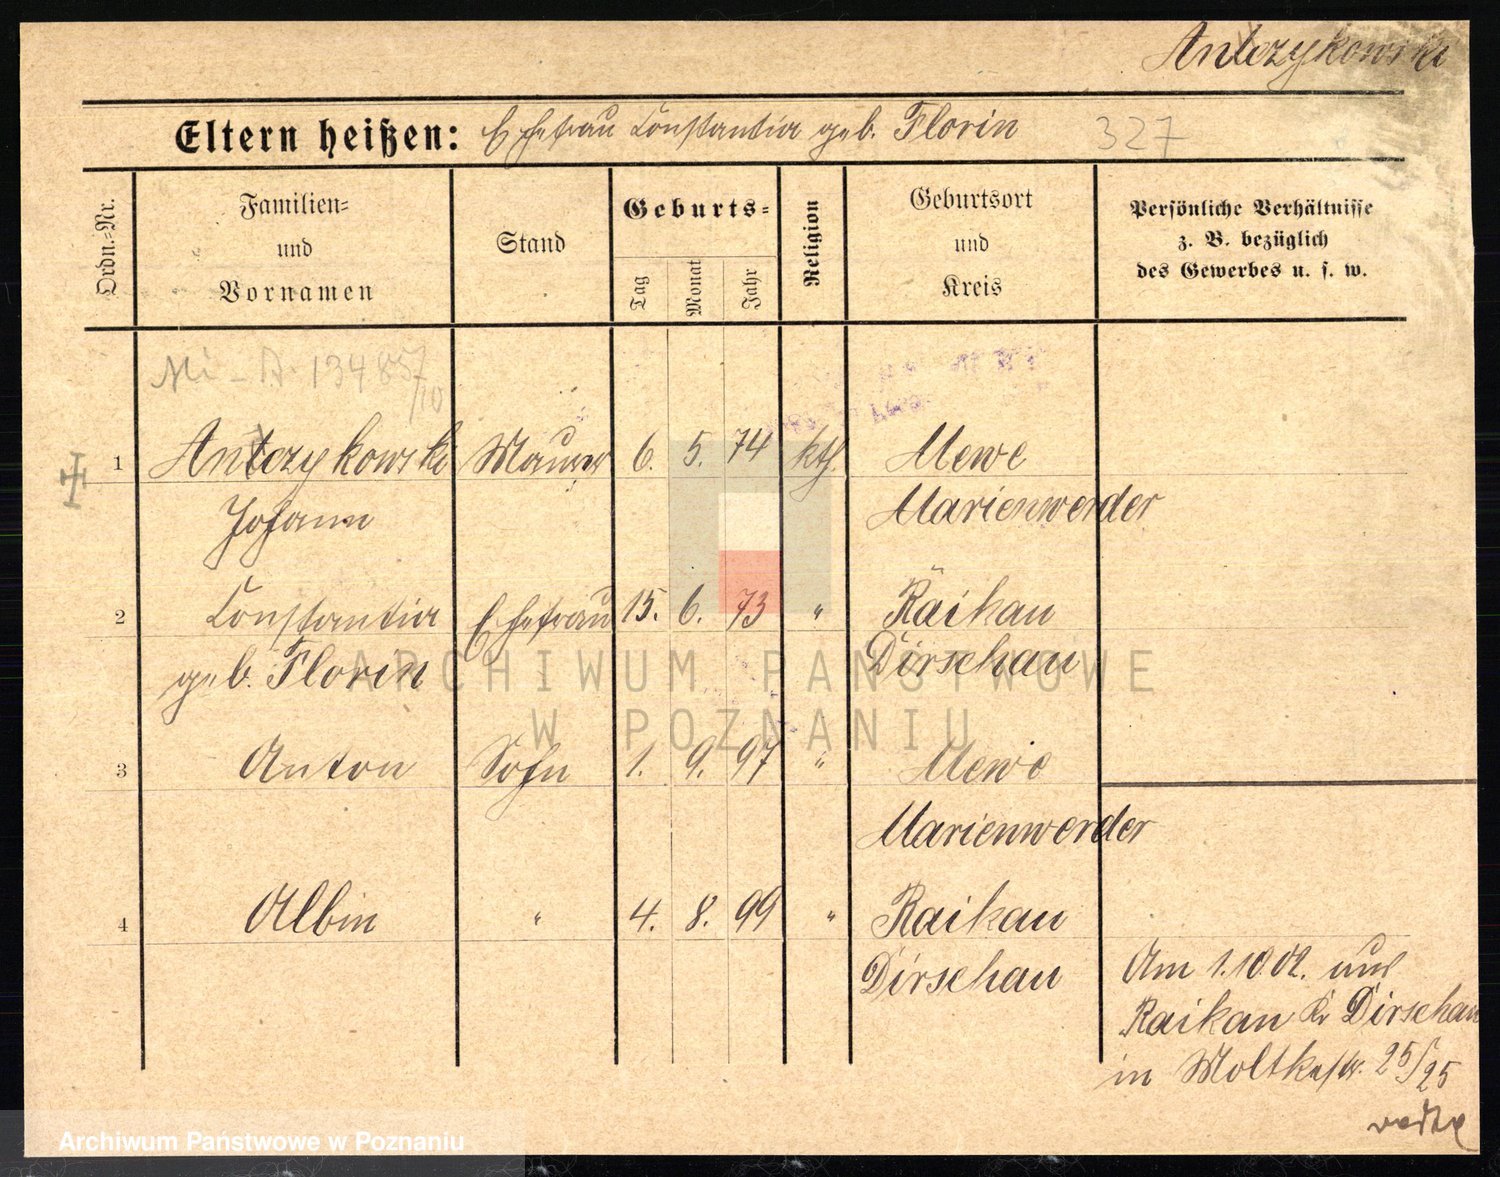 Antczykowski
Eltern heißen: Ehefrau Constantia geb. Florin 327
Ordn.-Nr.
Familien-
und
Vornamen
Stand
Geburts-
Tag
Monat
Jahr
Religion
Geburtsort
und
Kreis
Persönliche Verhältnisse
z. B. bezüglich
des Gewerbes u. s. w.
1 Antczykowski Maurer 6. 5. 74 kth. Mewe
Johann Marienwerder
2 Constantia Ehefrau 15. 6. 73 " Raikau
geb. Florin Dirschau
3 Anton Sohn 1. 9. 97 " Mewe
Marienwerder
4 Albin " 4. 8. 99 " Raikau
Dirschau
Am 1.10.01. aus
Raikau Kr Dirschau
in Moltkestr. 25/25
ARCHIWUM PAŃSTWOWE
W POZNANIU
Archiwum Państwowe w Poznaniu